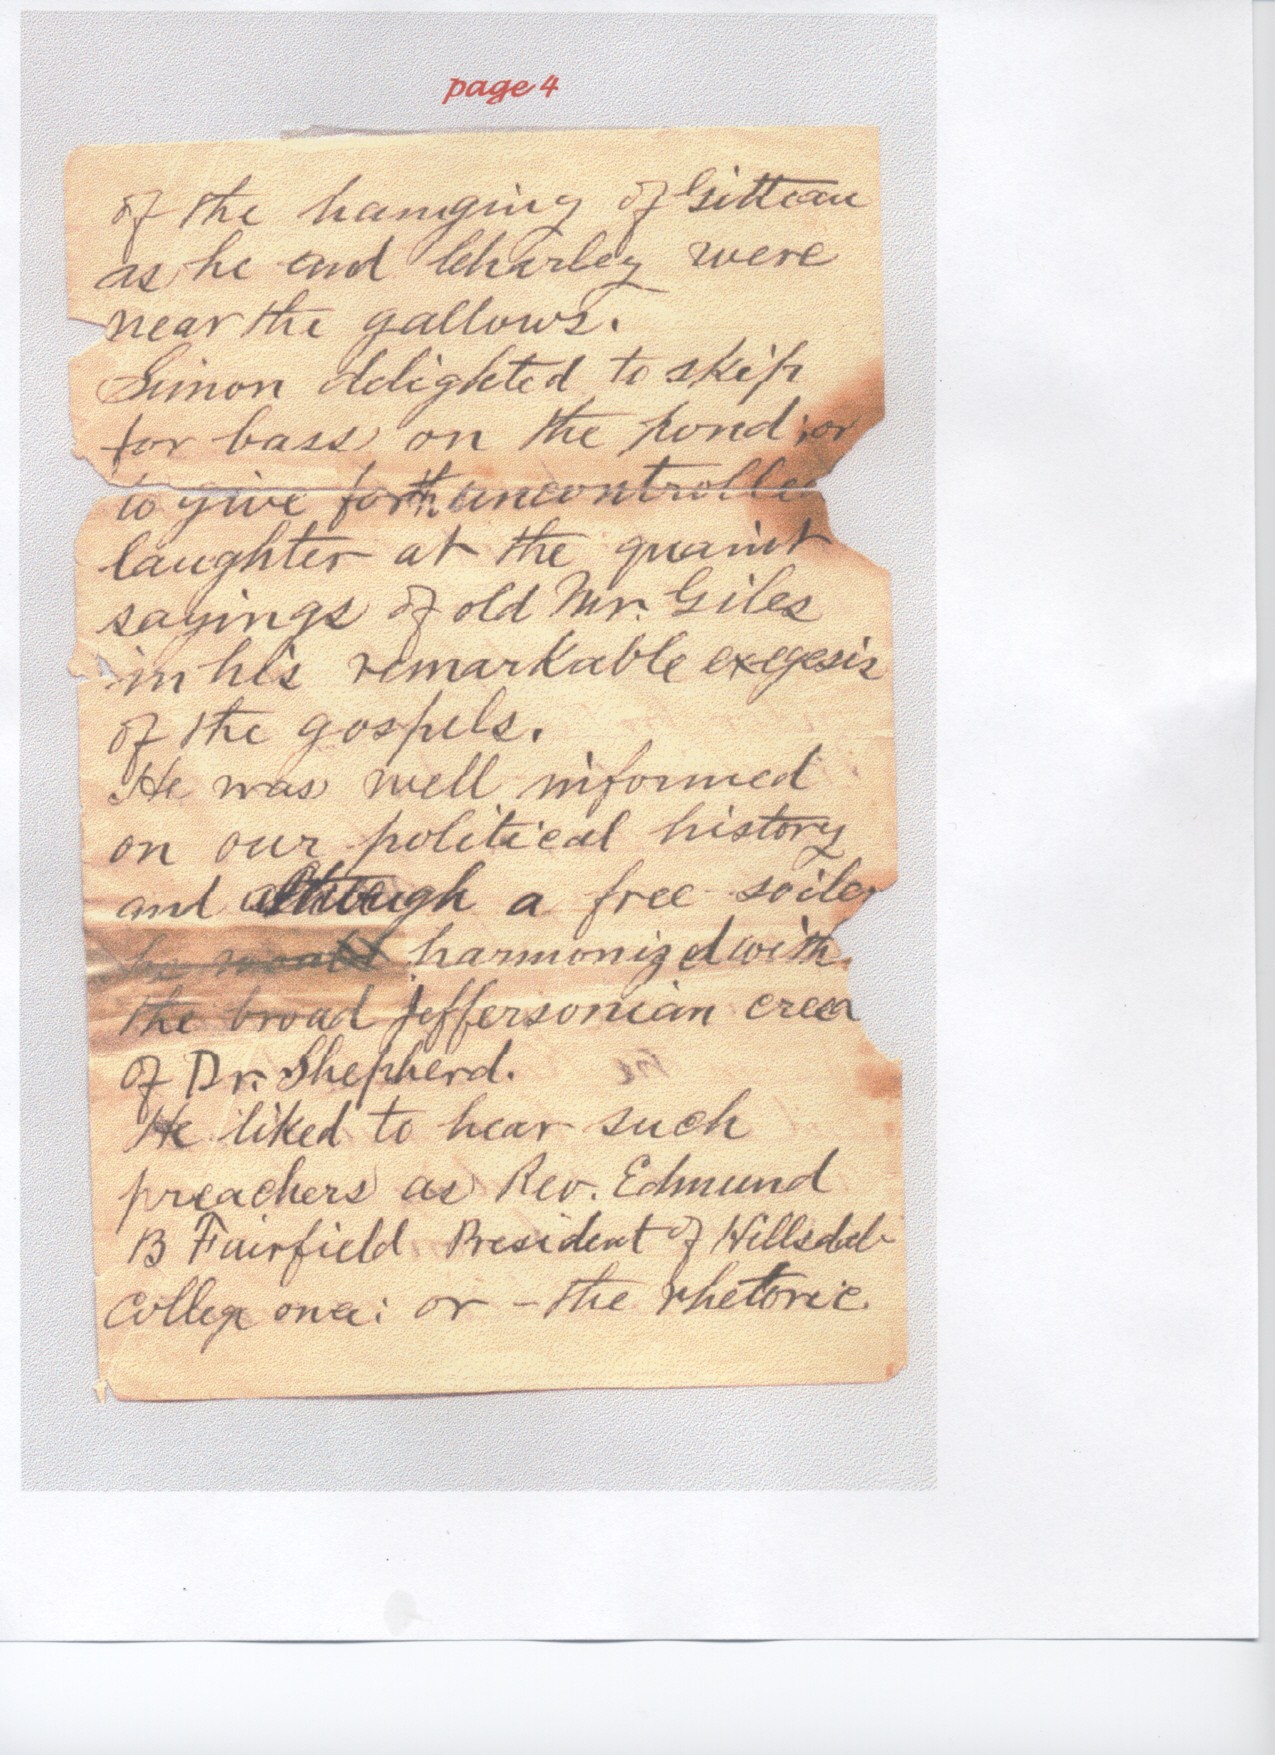 page 4
of the hanging of Gitteau
as he and Charley were
near the gallows.
Simon delighted to skip
for bass on the pond; or
to give forth uncontrolled
laughter at the quaint
sayings of old Mr. Giles
in his remarkable exegesis
of the gospels.
He was well informed
on our political history
and although a free-soiler
he would harmonized with
the broad Jeffersonian creed
of Dr. Shepherd.
He liked to hear such
preachers as Rev. Edmund
B Fairfield President of Hillsdale
College once: or - the rhetoric